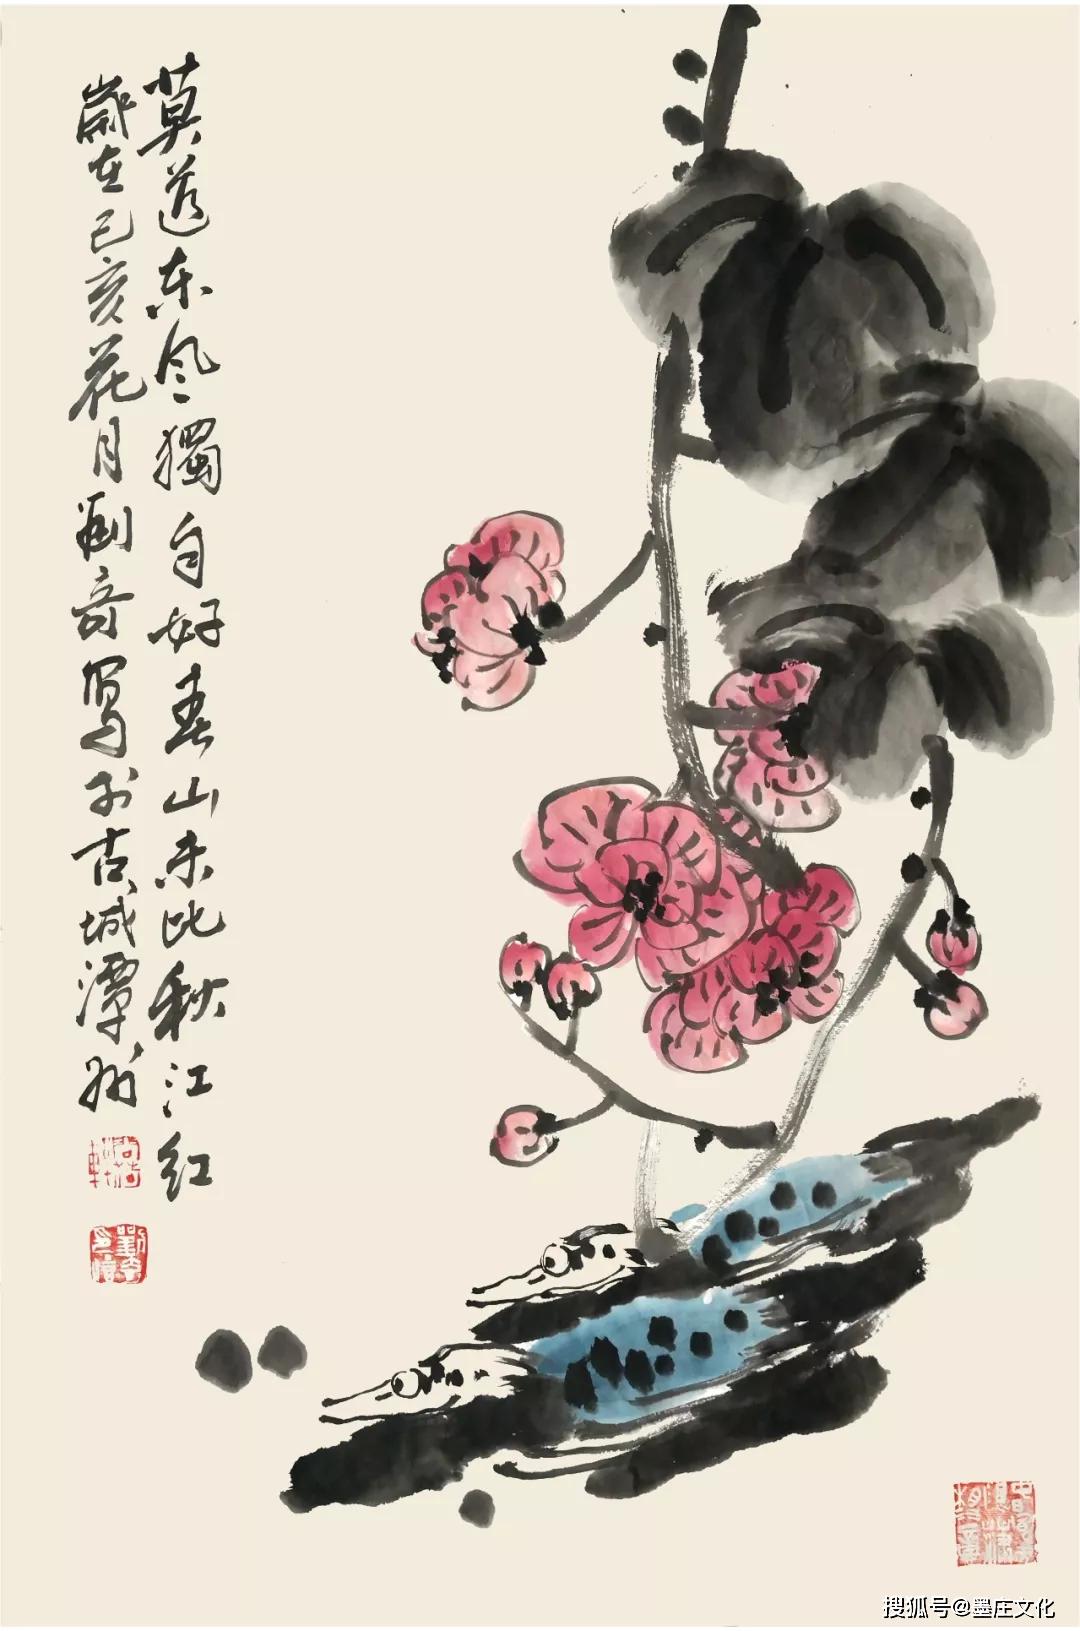 莫道东风獨自好春山未比秋江红
歲在己亥花月劉奇寫於古城潭州
搜狐号@墨庄文化